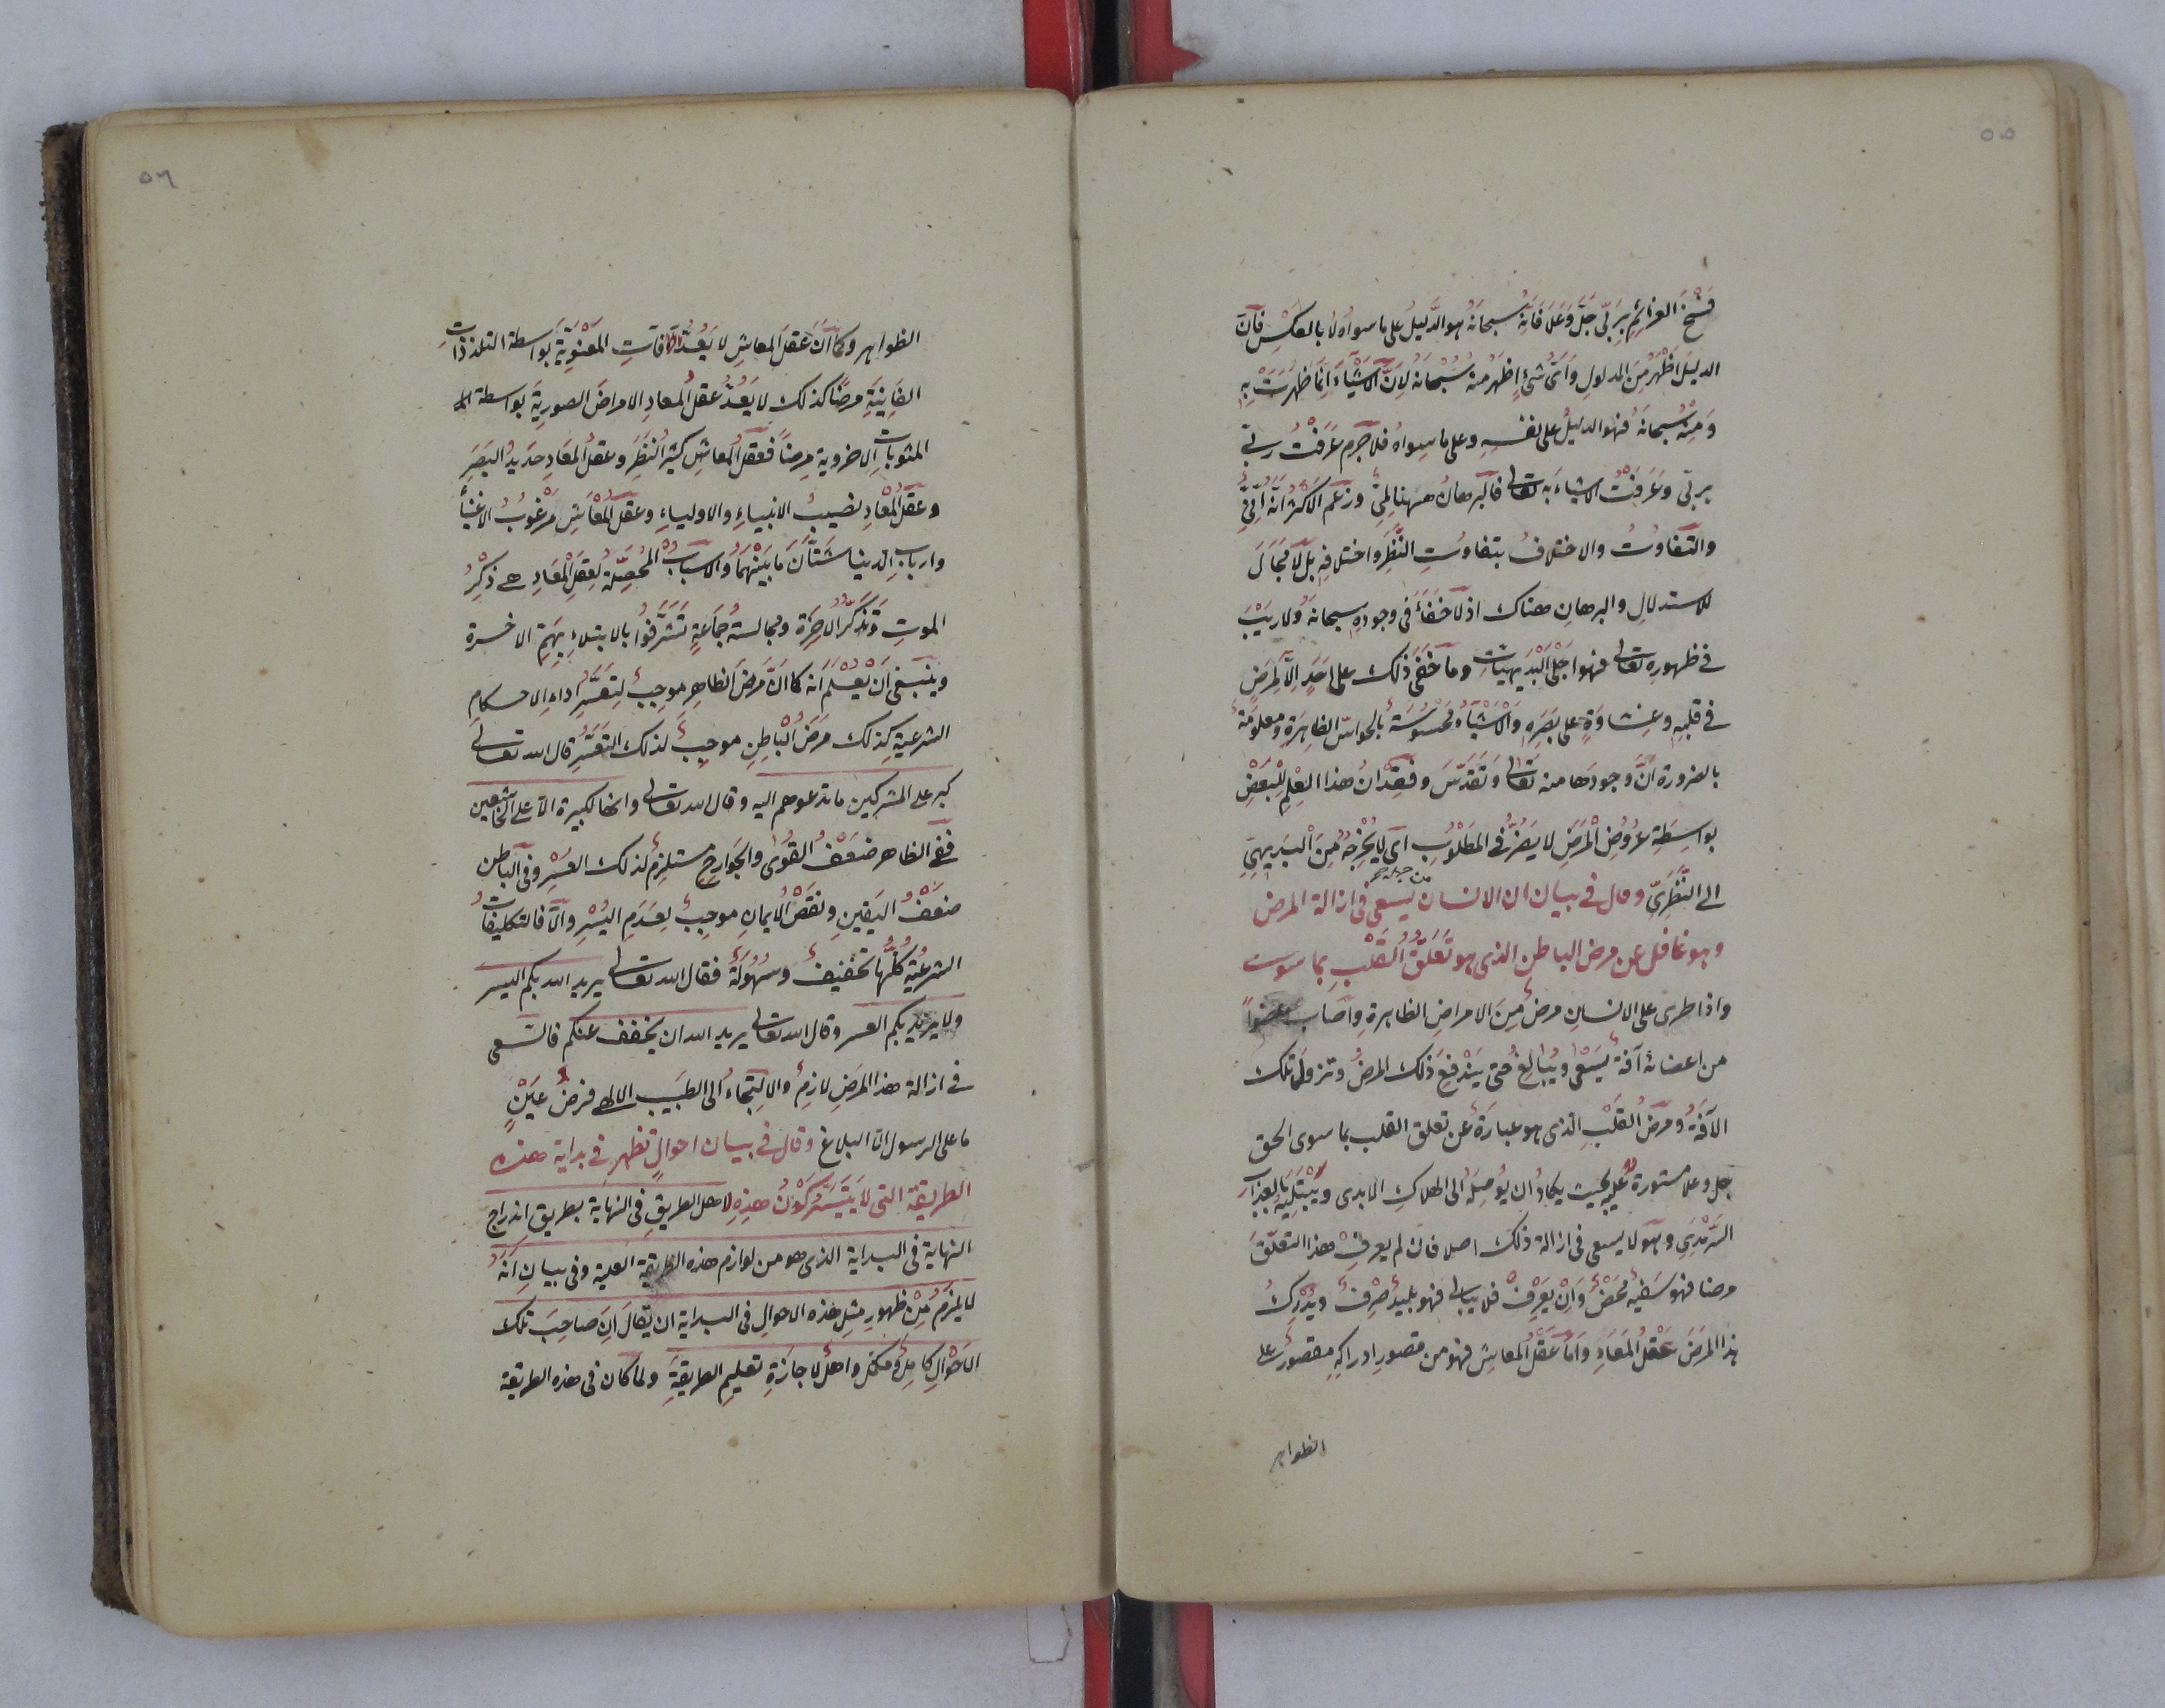 ٥٥
فسخ العزائم بربي جل وعلا فانه سبحانه هو الدليل على ما سواه لا بالعكس فان
الدليل اظهر من المدلول واى شئ اظهر منه سبحانه لان الاشياء انما ظهرت به
ومنه سبحانه فهو الدليل على نفسه وعلى ما سواه فلا جرم عرفت ربى
بربى وعرفت الاشياء به تعالى فالبرهان ههنا لمى وزعم الاكثر انه انى
والتفاوت والاختلاف بتفاوت النظر واختلافه بل لا مجال
للاستدلال والبرهان هناك اذ لا خفاء فى وجوده سبحانه ولا ريب
فى ظهوره تعالى فهو اجلى البديهيات وما خفى ذلك على احد الا لمرض
فى قلبه وغشاوة على بصره والاشياء محسوسة بالحواس الظاهرة ومعلومة
بالضرورة ان وجودها منه تعالى وتقدس وفقدان هذا العلم للبعض
بواسطة عروض المرض لا يضر فى المطلوب اى لا يخرجه من البديهى
الى النظرى وقال فى بيان ان الانسان يسعى فى ازالة المرض
وهو غافل عن مرض الباطن الذى هو تعلق القلب بما سوى
واذا طرى على الانسان مرض من الامراض الظاهرة واصاب عضوا
من اعضائه آفة يسعى ويبالغ حتى يندفع ذلك المرض وتزول تلك
الآفة ومرض القلب الذى هو عبارة عن تعلق القلب بما سوى الحق
جل وعلا مستورة عليه بحيث يكاد ان يوصله الى الهلاك الابدى ويبتليه بالعذاب
السرمدى وهو لا يسعى فى ازالة ذلك اصلا فان لم يعرف هذا التعلق
مرضا فهو سفيه محض وان يعرف فلا يبالى فهو بليد صرف ويدرك
هذا المرض عقل المعاد واما عقل المعاش فهو من قصور ادراكه مقصور على
الظواهر
٥٦
الظواهر وكما ان عقل المعاش لا يعد الآفات المعنوية بواسطة التلذذات
الفانية مرضا كذلك لا يعد عقل المعاد الامراض الصورية بواسطة
المثوبات الاخروية مرضا فعقل المعاش كثير النظر وعقل المعاد حديد البصر
وعقل المعاد نصيب الانبياء والاولياء وعقل المعاش مرغوب الاغنياء
وارباب الدنيا شتان ما بينهما والاسباب المحصلة لعقل المعاد هى ذكر
الموت وتذكر الاخرة ومجالسة جماعة تشرفوا بالابتلاء بهم الاخرة
وينبغى ان يعلم انه كما ان مرض الظاهر موجب لتعسر اداء الاحكام
الشرعية كذلك مرض الباطن موجب لذلك التعسر قال الله تعالى
كبر على المشركين ما تدعوهم اليه وقال الله تعالى وانها لكبيرة الا على الخاشعين
ففى الظاهر ضعف القوى والجوارح مستلزم لذلك العسر وفى الباطن
ضعف اليقين ونقص الايمان موجب لعدم اليسر والا فالتكليفات
الشرعية كلها تخفيف وسهولة فقال الله تعالى يريد الله بكم اليسر
ولا يريد بكم العسر وقال الله تعالى يريد الله ان يخفف عنكم فالسعى
فى ازالة هذا المرض لازم والالتجاء الى الطبيب الالهى فرض عين
ما على الرسول الا البلاغ وقال فى بيان احوال تظهر فى بداية هذه
الطريقة التى لا يتيسر كون هذه لاهل الطريق فى النهاية بطريق اندراج
النهاية فى البداية الذى هو من لوازم هذه الطريقة العلية وفى بيان انه
لا يلزم من ظهور مثل هذه الاحوال فى البداية ان يقال ان صاحب تلك
الاحوال كامل ومكمل واهل لاجازة تعليم الطريقة ولما كان فى هذه الطريقة